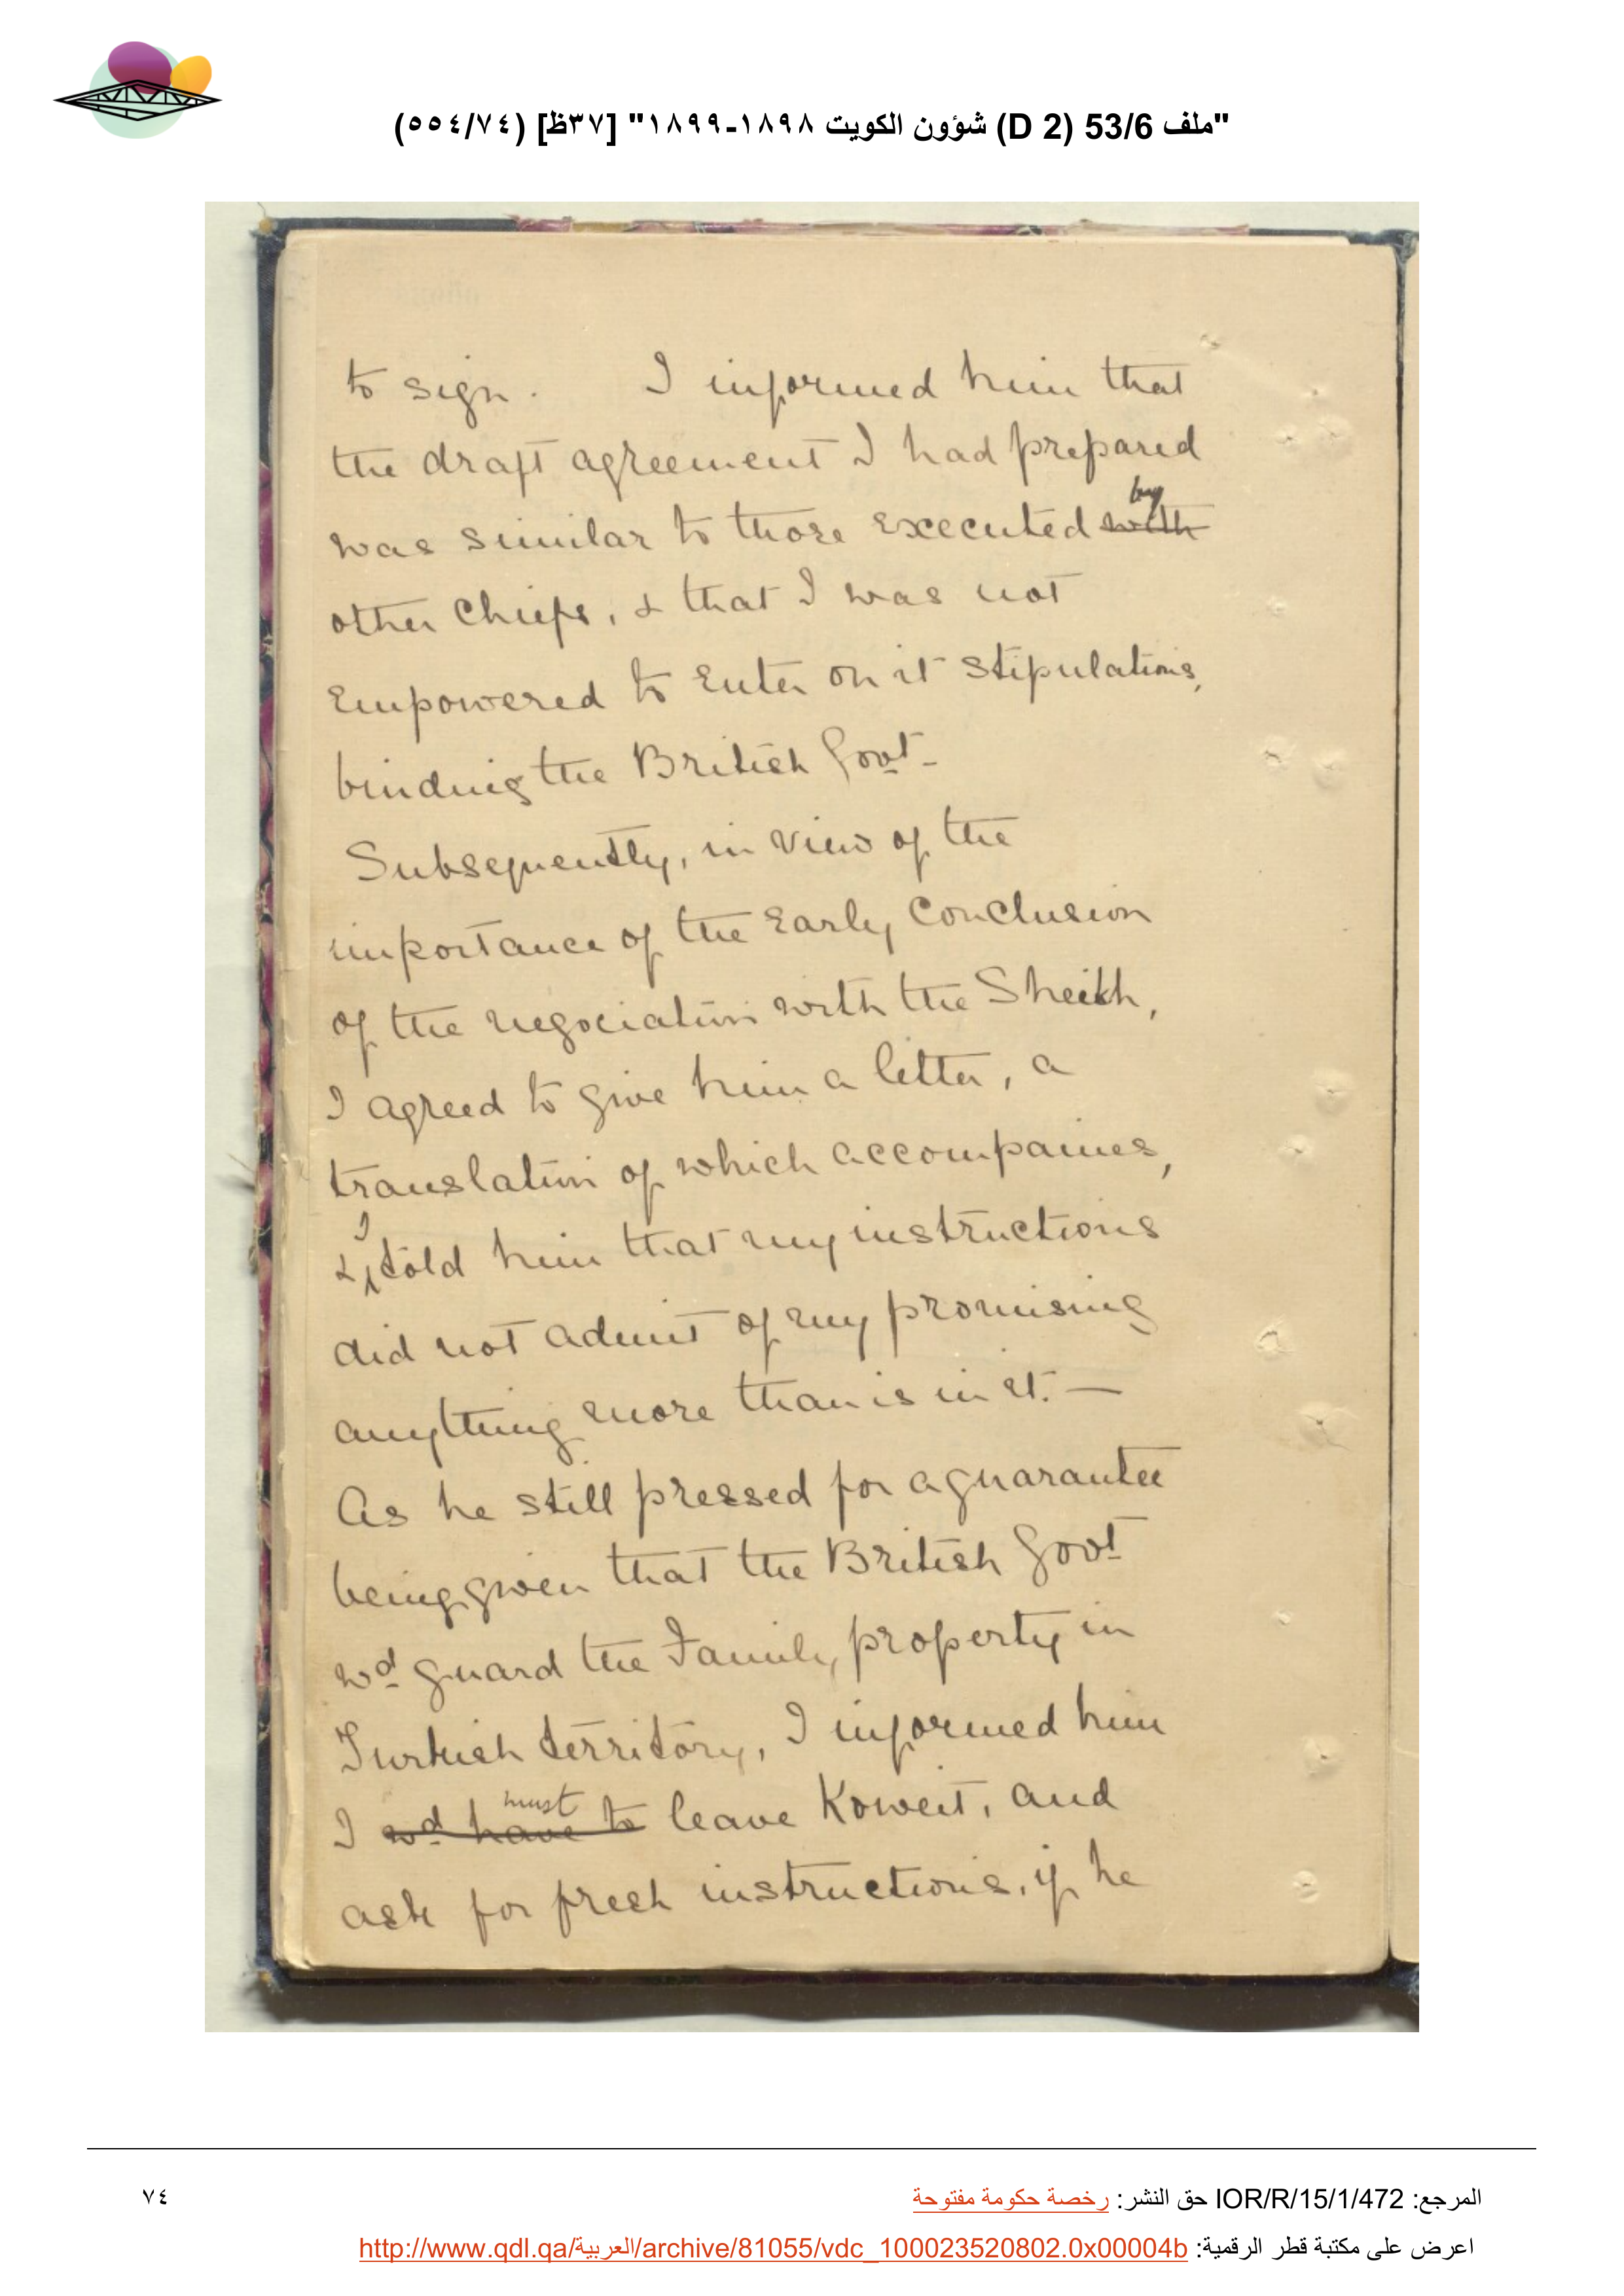 "ملف 53/6 (D 2) شؤون الكويت ١٨٩٨-١٨٩٩" [٣٧ظ] (٥٥٤/٧٤)
to sign. I informed him that
the draft agreement I had prepared
by
was similar to those executed with
other Chiefs, & that I was not
empowered to enter on it stipulations,
binding the British Govt-
Subsequently, in view of the
importance of the early conclusion
of the negociation with the Sheikh,
I agreed to give him a letter, a
translation of which accompanies,
I
& told him that my instructions
did not admit of my promising
anything more than is in it. —
As he still pressed for a guarantee
being given that the British Govt
wd guard the Family property in
Turkish territory, I informed him
must
I wd have to leave Koweit, and
ask for fresh instructions, if he
المرجع: IOR/R/15/1/472 حق النشر: رخصة حكومة مفتوحة
٧٤
اعرض على مكتبة قطر الرقمية: http://www.qdl.qa/العربية/archive/81055/vdc_100023520802.0x00004b